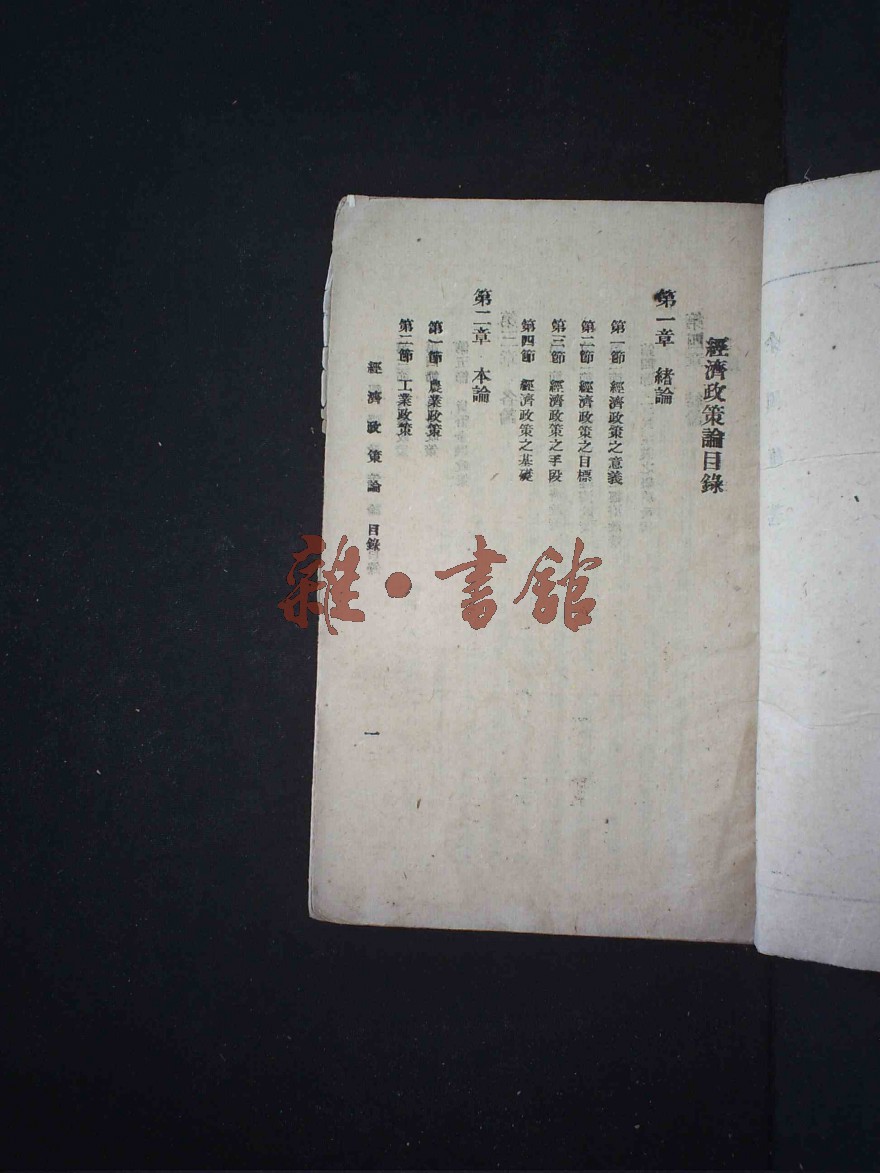 經濟政策論目錄
第一章 緒論
第一節 經濟政策之意義
第二節 經濟政策之目標
第三節 經濟政策之手段
第四節 經濟政策之基礎
第二章 本論
第一節 農業政策
第二節 工業政策
經濟政策論 目錄
一
雜·書館